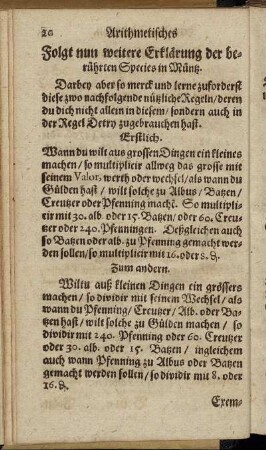 20 Arithmetisches
Folgt nun weitere Erklärung der be-
rührten Species in Müntz.
Darbey aber so merck und lerne zuforderst
diese zwo nachfolgende nützliche Regeln/deren
du dich nicht allein in diesem/ sondern auch in
der Regel Detry zugebrauchen hast.
Erstlich.
Wann du wilt aus grossen Dingen ein kleines
machen/ so multiplicir allweg das grosse mit
seinem Valor, werth oder wechsel/als wann du
Gülden hast / wilt solche zu Albus/ Batzen/
Creutzer oder Pfenning macht. So multipli-
cir mit 30. alb. oder 15. Batzen/ oder 60. Creu-
tzer oder 240. Pfenningen. Deßgleichen auch
so Batzen oder alb. zu Pfenning gemacht wer-
den sollen/so multiplicir mit 16. oder 8. ₰.
Zum andern.
Wiltu auß kleinen Dingen ein grössers
machen/ so dividir mit seinem Wechsel/ als
wann du Pfenning/ Creutzer/ Alb. oder Ba-
tzen hast/ wilt solche zu Gülden machen / so
dividir mit 240. Pfenning oder 60. Creutzer
oder 30. alb. oder 15. Batzen / ingleichem
auch wann Pfenning zu Albus oder Batzen
gemacht werden sollen/ so dividir mit 8. oder
16. ₰.
Exem-